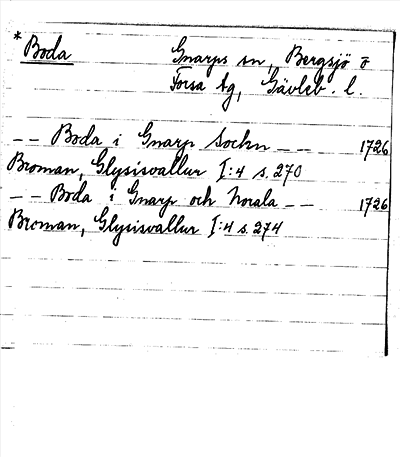 * Boda Gnarps sn, Bergsjö o
Forsa tg, Gävleb. l.
-- Boda i Gnarp Sockn -- 1726
Broman, Glysisvallur I:4 s. 270
-- Boda i Gnarp och Norala -- 1726
Broman, Glysisvallur I:4 s. 274